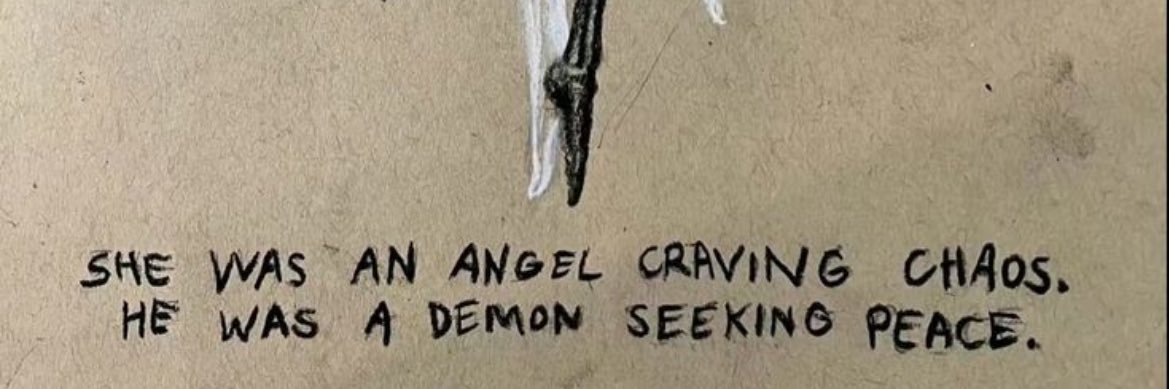 SHE WAS AN ANGEL CRAVING CHAOS.
HE WAS A DEMON SEEKING PEACE.